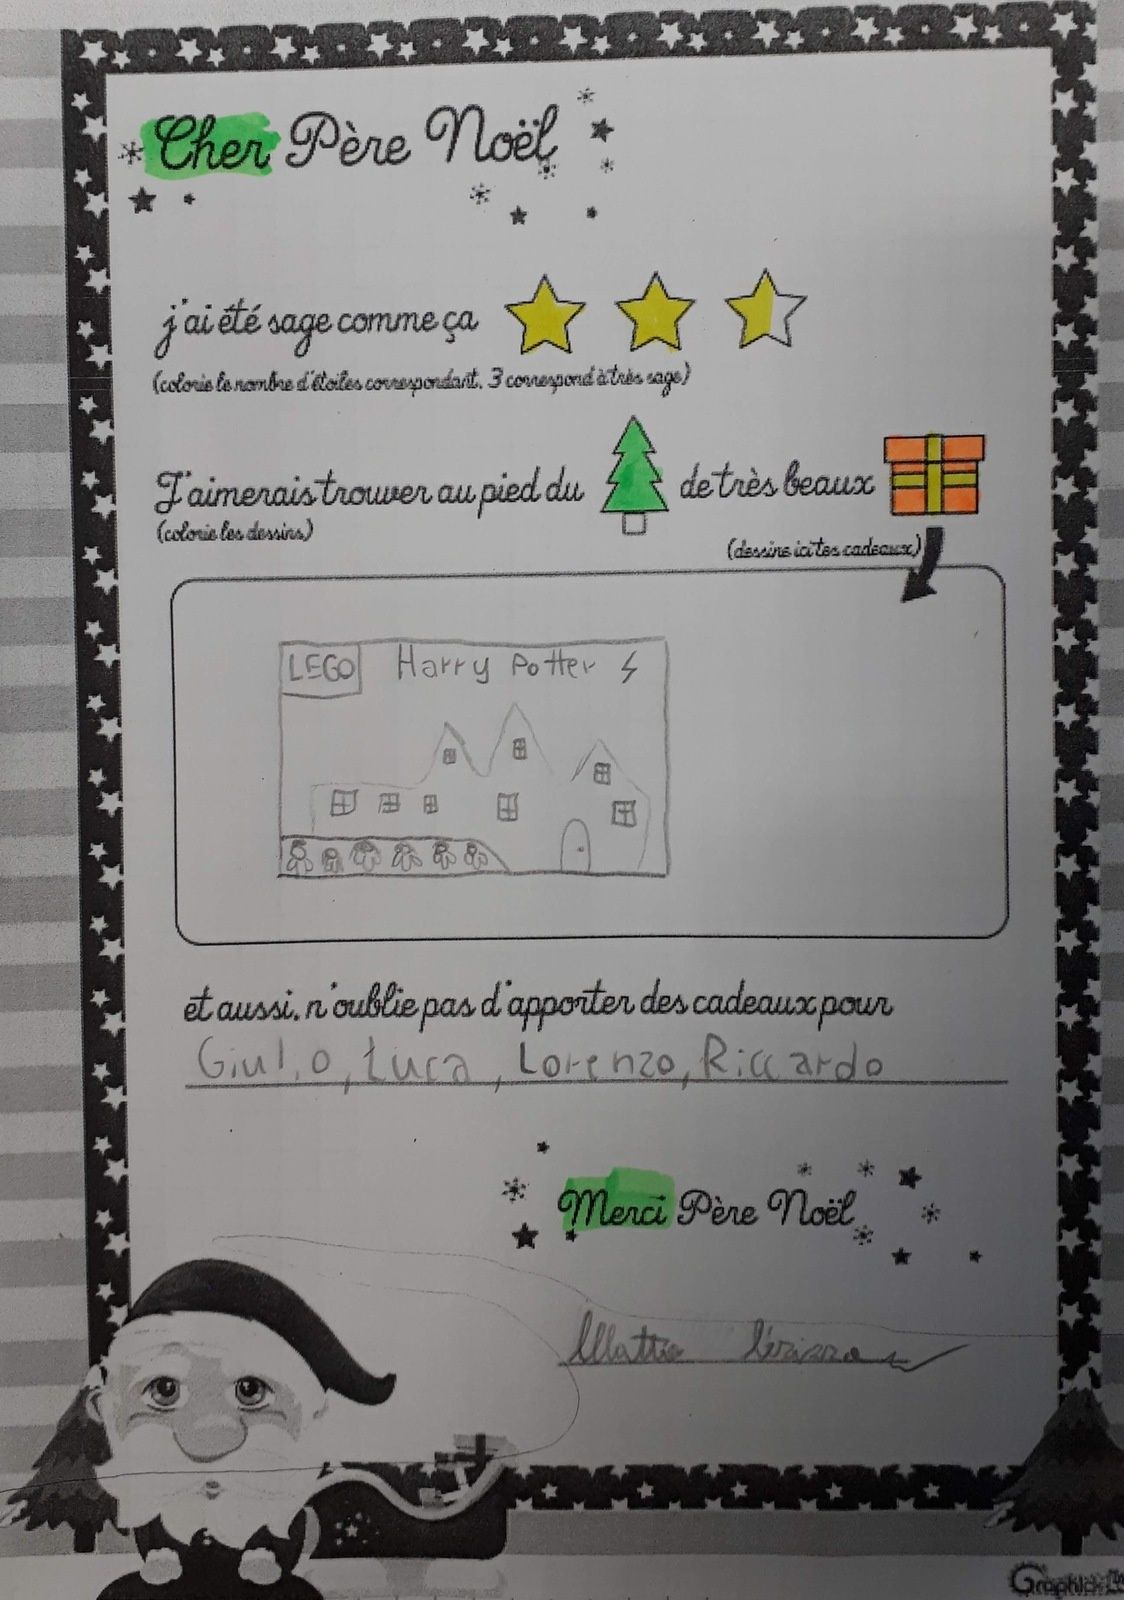 Cher Père Noël
j'ai été sage comme ça
(colorie le nombre d'étoiles correspondant. 3 correspond à très sage)
J'aimerais trouver au pied du de très beaux
(colorie les dessins)
(dessine ici tes cadeaux)
LEGO Harry Potter
et aussi, n'oublie pas d'apporter des cadeaux pour
Giulio, Luca, Lorenzo, Riccardo
Merci Père Noël
Mattia